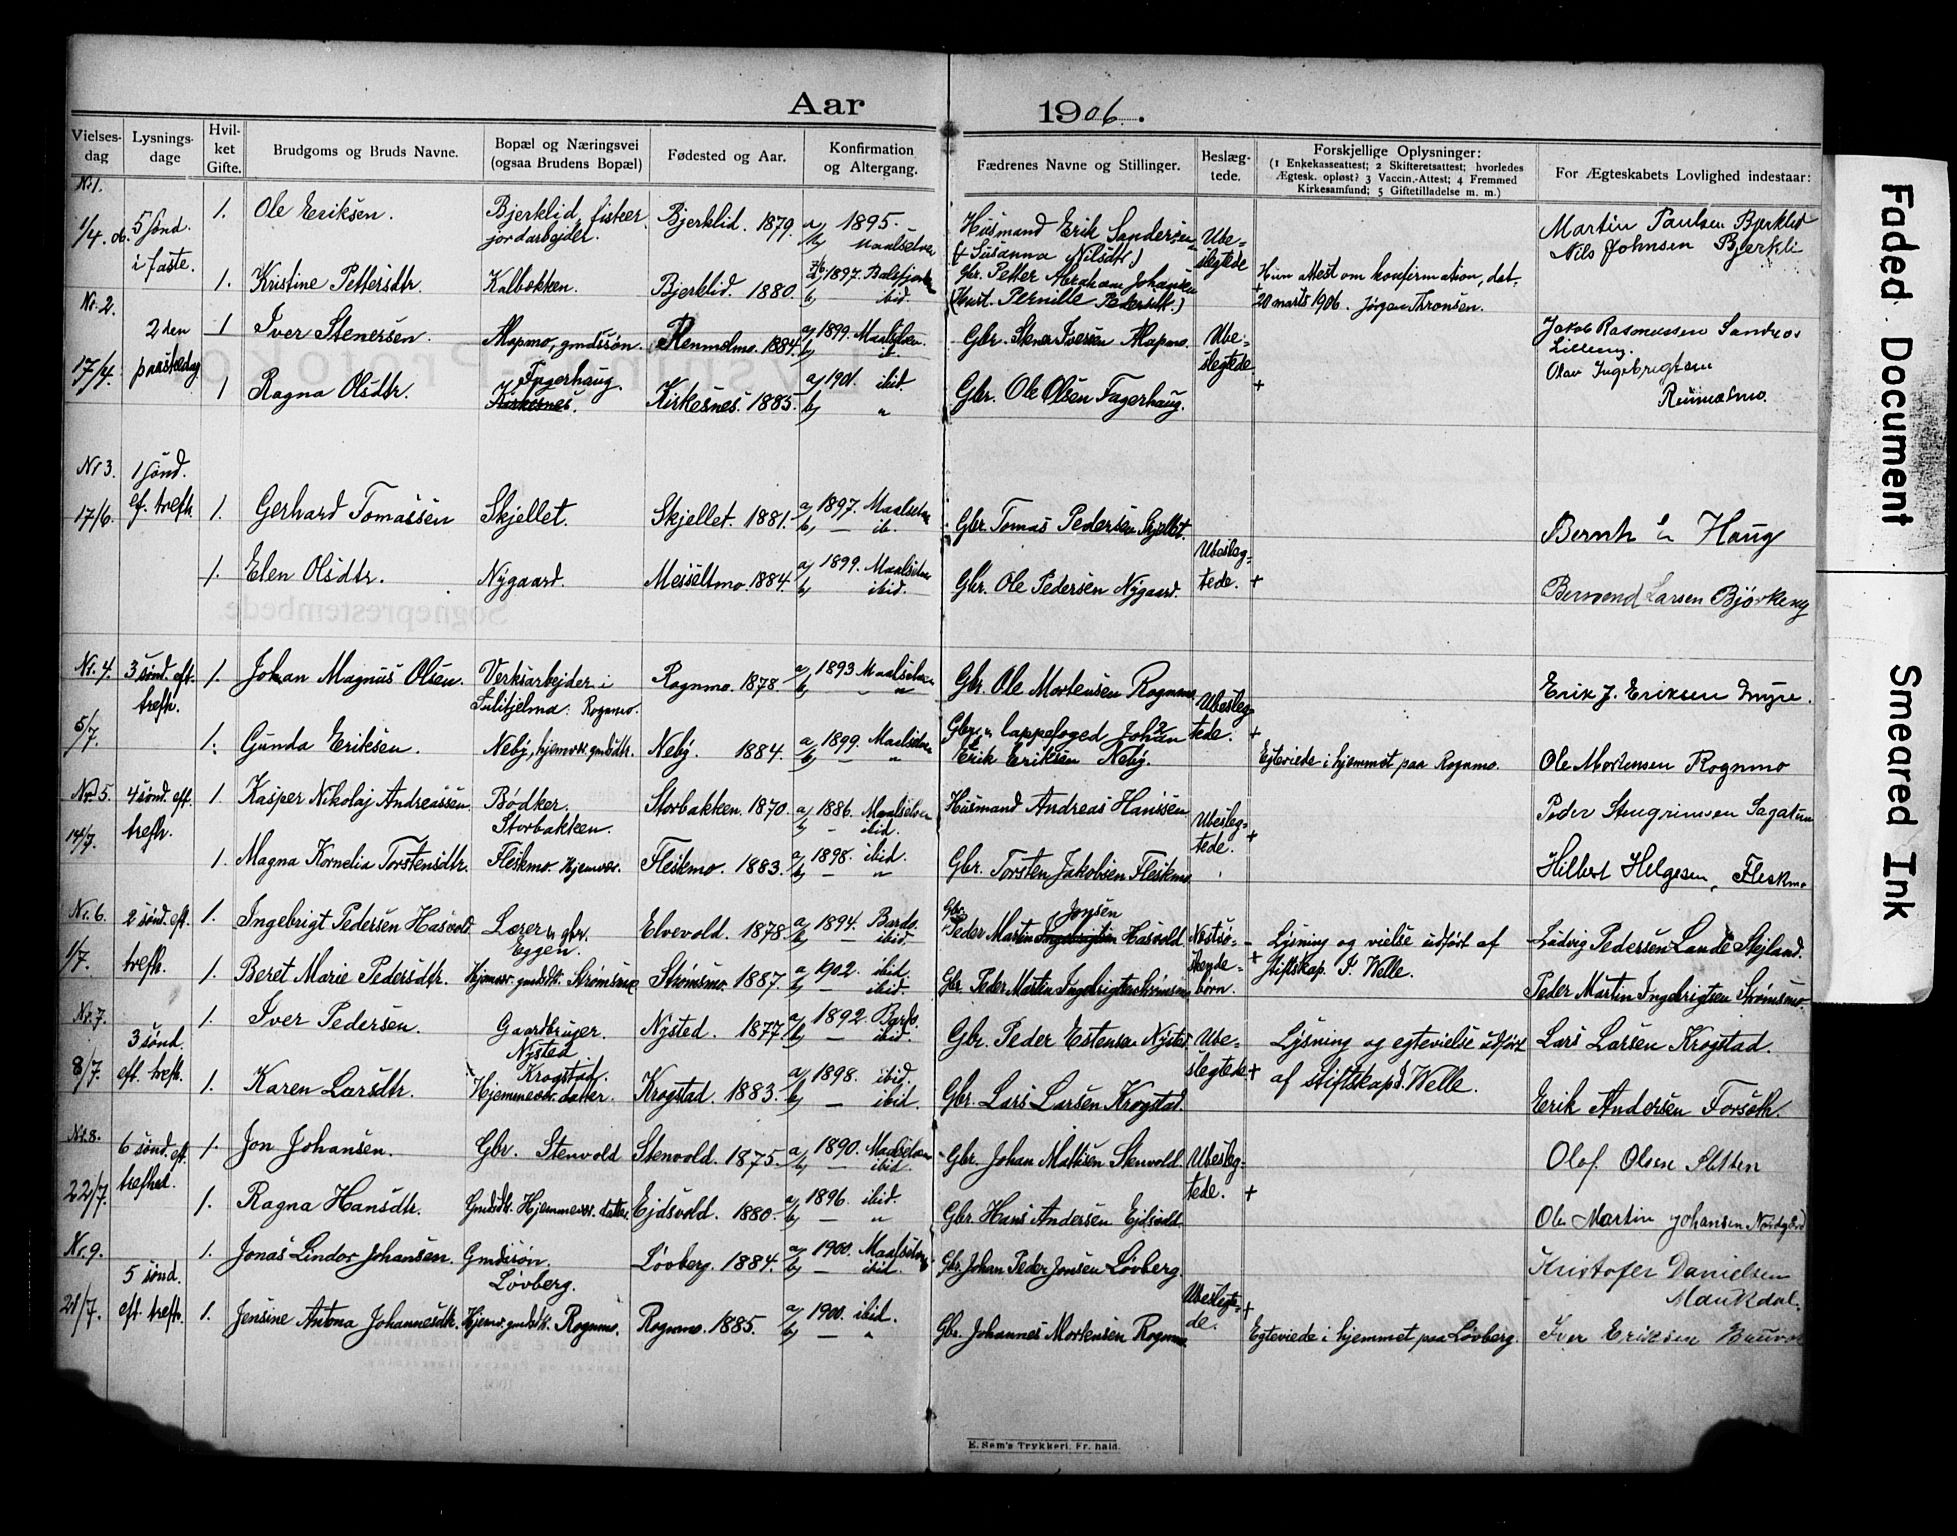 Aar 1906.
Vielses-dag
Lysnings-dage
Hvil-ket Gifte.
Brudgoms og Bruds Navne.
Bopæl og Næringsvei
(ogsaa Brudens Bopæl)
Fødested og Aar.
Konfirmation
og Altergang.
Fædrenes Navne og Stillinger.
Beslæg-tede.
Forskjellige Oplysninger:
(1 Enkekasseattest; 2 Skifteretsattest; hvorledes
Ægtesk. opløst? 3 Vaccin.-Attest; 4 Fremmed
Kirkesamfund; 5 Giftetilladelse m. m.)
For Ægteskabets Lovlighed indestaar:
Nr 1.
1/4. 06.
5 sønd.
i faste.
1. Ole Eriksen.
Bjerklid, fisker,
jordarbejder.
Bjerklid. 1879.
a/ 1895.
b/ Maalselven
Husmand Erik Sandersen
(& Susanna Nilsdtr)
Ube-
slegtede
Martin Paulsen Bjerklid
Nils Johnsen Bjerkli
1. Kristine Pettersdtr
Kalbakken.
Bjerklid. 1880.
a/ 1897. Balsfjorden
b/ ibid.
Gbr. Petter Abraham Johansen
(Hust. Pernille Pedersdtr.)
+
Hun attest om konfirmation, dat.
20 marts 1906. Jørgen Thronsen.
Nr. 2.
17/4.
2den
paaskedag
1 Iver Stenersen.
Alapmo, gmdssøn.
Renmelmo. 1884.
a/ 1899. Maalselven.
b/ ib.
Gbr. Stener Iversen Alapmo.
Ube-
slegtede
Jakob Rasmussen Sandnes
Olav Ingebrigtsen
1 Ragna Olsdtr.
Fagerhaug.
Kirkesnes.
Kirkesnes. 1885.
a/ 1901. ibid.
b/ "
Gbr. Ole Olsen Fagerhaug.
+
Nr 3.
17/6.
1 sønd.
ef. trefh.
1. Gerhard Tomassen
Skjellet.
Skjellet. 1881.
a/ 1897. Maalselven
b/ — ib.
Gbr. Tomas Pedersen Skjellet.
Bernh L Haug
1. Elen Olsdtr.
Nygaard.
Messeltmo. 1884.
a/ 1899. Maalselven
b/ ibid.
Gbr. Ole Pedersen Nygaard.
Ubesleg-
tede. +
Bernond Larsen Bjørkeng
Nr. 4.
5/7.
3 sønd. eft.
trefh.
1. Johan Magnus Olsen.
Verksarbejder i
Sulitjelma. Rognmo.
Rognmo. 1878.
a/ 1893 Maalselven
b/ — "
Gbr. Ole Mortensen Rognmo
Ubesleg-
tede. +
Erik J. Eriksen Myre.
1. Gunda Eriksen.
Neby, hjemvær. gmdsdtr.
Neby. 1884.
a/ 1899. Maalselven
b/ — "
Gbr. & lappefoged Johan
Erik Eriksen Neby.
Egteviede i hjemmet paa Rognmo.
Ole Mortensen Rognmo
Nr. 5.
14/7.
4 sønd. eft.
trefh.
1. Kasper Nikolaj Andreassen.
Bødker.
Storbakken.
Storbakken. 1870.
a/ 1886. Maalselven
b/ — ibid.
Husmand Andreas Hanssen
Ubesleg-
tede. +
Peder Steingrimsen Sagatun
1. Magna Kornelia Torstensdtr.
Fleskmo. Hjemvær.
Fleskmo. 1883.
a/ 1898. ibid.
b/ — "
Gbr. Torsten Jakobsen Fleskmo
Hilbert Helgesen, Fleskmo
Nr. 6.
1/7.
2 sønd. eft.
trefh.
1. Ingebrigt Pedersen Hasvold
Lærer & gbr.
Eggen.
Elvevold. 1878.
a/ 1894. Bardo.
b/ — ibid.
Gbr.
Jonsen
Peder Martin Ingebrigtsen Hasvold
Nestsø-
skende-
børn. +
Lysning og vielse udført af
stiftskap. P. Welle.
Ludvig Pedersen Lande Stejland.
1. Beret Marie Pedersdtr.
Hjemvær. gmdsdtr. Strømsmo
Strømsmo. 1887.
a/ 1902. ibid.
b/ — ibid.
Gbr. Peder Martin Ingebrigtsen Strømsmo
Peder Martin Ingebrigtsen Strømsmo.
Nr. 7.
8/7.
3 sønd.
eft. trefh.
1. Iver Pedersen.
Gaardbruger.
Nysted
Nysted. 1877.
a/ 1892. Bardo.
b/ — ibid.
Gbr. Peder Estensen Nysted.
Ube-
slegtede +
Lysning og egtevielse udført
af stiftskap. P. Welle.
Lars Larsen Krogstad.
1. Karen Larsdtr.
Krogstad.
Hjemmevær. datter.
Krogstad. 1883.
a/ 1898. ibid.
b/ — ibid.
Gbr. Lars Larsen Krogstad.
Erik Andersen Forseth.
Nr. 8.
22/7.
6 sønd. eft.
trefhed.
1. Jon Johansen.
Gbr. Stenvold
Stenvold. 1875.
a/ 1890. Maalselven
b/ — ibid.
Gbr. Johan Mattisen Stenvold.
Ubesleg-
tede. +
Olof Olsen Sletten
1. Ragna Hansdtr.
Gmdsdtr. Hjemmevær. datter.
Ejdsvold. 1880.
a/ 1896. ibid.
b/ — "
Gbr. Hans Andersen Ejdsvold
Ole Martin Johansen Nordgård
Nr. 9.
21/7.
5 sønd.
eft. trefh.
1. Jonas Lindor Johansen.
Gmdssøn.
Løvberg.
Løvberg. 1884.
a/ 1900. Maalselven
b/ — ibid.
Gbr. Johan Peder Jonsen Løvberg.
Ubeslegte-
de. +
Kristofer Danielsen
Maukdal.
1. Jensine Antona Johannesdtr.
Hjemvær. gmdsdtr. Rognmo.
Rognmo. 1885.
a/ 1900. ibid.
b/ — "
Gbr. Johannes Mortensen Rognmo
Egteviede i hjemmet paa Løvberg.
Iver Eriksen
E. Sem's Trykkeri, Fr. hald.
Faded Document
Smeared Ink